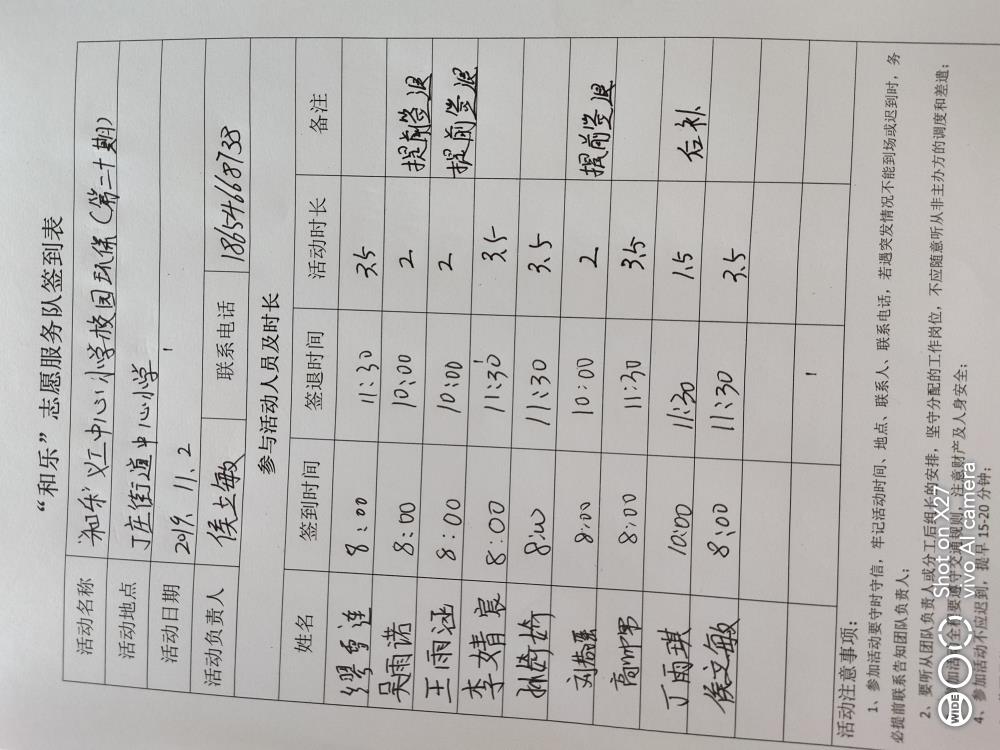 “和乐”志愿服务队签到表
活动名称 “和乐”义工中心小学校园环保（第二十期）
活动地点 丁庄街道中心小学
活动日期 2019.11.2
活动负责人 侯立敏 联系电话 18654668738
参与活动人员及时长
姓名 签到时间 签退时间 活动时长 备注
缪重莲 8:00 11:30 3.5
吴雨诺 8:00 10:00 2 提前签退
王雨涵 8:00 10:00 2 提前签退
李婧宸 8:00 11:30 3.5
8:00 11:30 3.5
8:00 10:00 2 提前签退
8:00 11:30 3.5
丁雨琪 10:00 11:30 1.5 后补
侯立敏 8:00 11:30 3.5
活动注意事项：
1、参加活动要守时守信，牢记活动时间、地点、联系人、联系电话，若遇突发情况不能到场或迟到时，务
必提前联系告知团队负责人；
2、要听从团队负责人或分工后组长的安排，坚守分配的工作岗位，不应随意听从非主办方的调度和差遣；
参加活动全程要遵守交通规则，注意财产及人身安全；
4、参加活动不应迟到，提早15-20分钟；
WIDE
Shot on X27
vivo AI camera